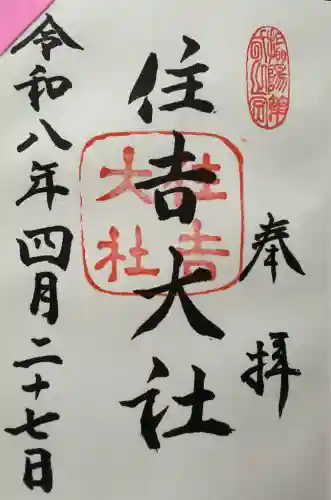 奉拝
住吉大社
住吉大社
令和八年四月二十七日